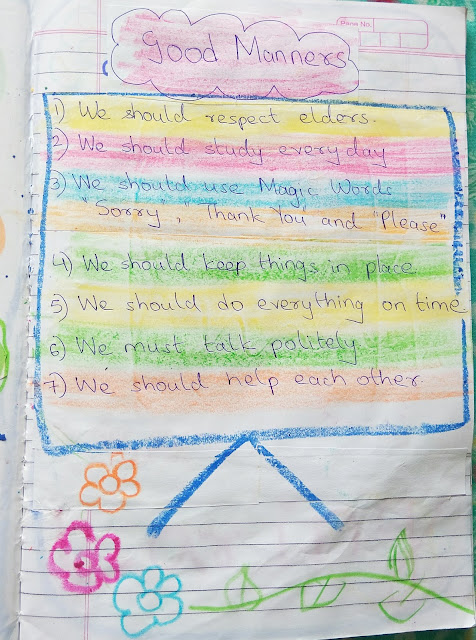 Page No.
Good Manners
1) We should respect elders.
2) We should study everyday
3) We should use Magic Words
"Sorry", "Thank You and "Please"
4) We should keep things in place
5) We should do everything on time
6) We must talk politely
7) We should help each other.